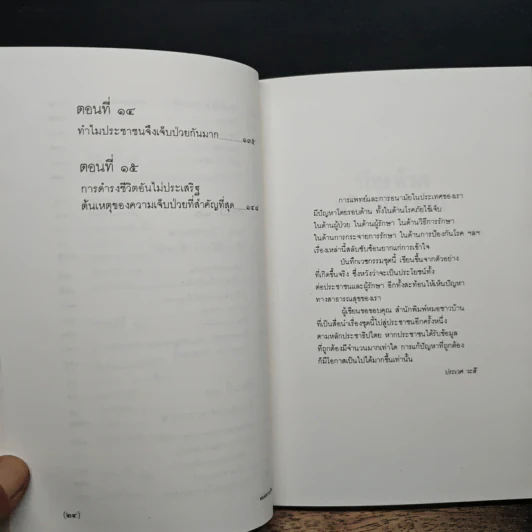 ตอนที่ ๑๔
ทำไมประชาชนจึงเจ็บป่วยกันมาก..........๑๓๖
ตอนที่ ๑๕
การดำรงชีวิตอันไม่ประเสริฐ
ต้นเหตุของความเจ็บป่วยที่สำคัญที่สุด.....๑๔๘
(๒๔)
การแพทย์และการอนามัยในประเทศของเรา
มีปัญหาโดยรอบด้าน ทั้งในด้านโรคภัยไข้เจ็บ
ในด้านผู้ป่วย ในด้านผู้รักษา ในด้านวิธีการรักษา
ในด้านการกระจายการรักษา ในด้านการป้องกันโรค ฯลฯ
เรื่องเหล่านี้สลับซับซ้อนยากแก่การเข้าใจ
บันทึกเวชกรรมชุดนี้ เขียนขึ้นจากตัวอย่าง
ที่เกิดขึ้นจริง ซึ่งหวังว่าจะเป็นประโยชน์ทั้ง
ต่อประชาชนและผู้รักษา อีกทั้งสะท้อนให้เห็นปัญหา
ทางสาธารณสุขของเรา
ผู้เขียนขอขอบคุณ สำนักพิมพ์หมอชาวบ้าน
ที่เป็นสื่อนำเรื่องชุดนี้ไปสู่ประชาชนอีกครั้งหนึ่ง
ตามหลักประชาธิปไตย หากประชาชนได้รับข้อมูล
ที่ถูกต้องมีจำนวนมากเท่าใด การแก้ปัญหาที่ถูกต้อง
ก็มีโอกาสเป็นไปได้มากขึ้นเท่านั้น
ประเวศ วะสี